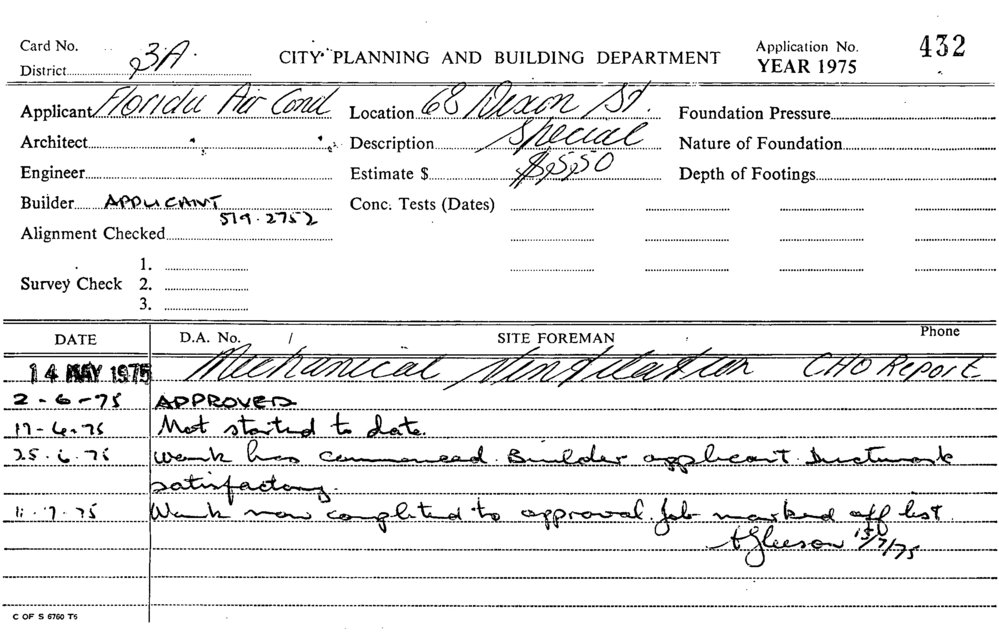 Card No. 3A. CITY PLANNING AND BUILDING DEPARTMENT Application No. 432
District YEAR 1975
Applicant Florida Air Cond Location 68 Dixon St. Foundation Pressure
Architect Description Special Nature of Foundation
Engineer Estimate $ $5,550 Depth of Footings
Builder APPLICANT Conc. Tests (Dates)
519.2752
Alignment Checked
1.
Survey Check 2.
3.
DATE D.A. No. / SITE FOREMAN Phone
14 MAY 1975 Mechanical Ventilation CHO Report
2-6-75 APPROVED
17-6-75 Not started to date.
25.6.75 Work has commenced. Builder applicant. Ductwork
satisfactory.
11.7.75 Work now completed to approval. Job marked off list.
A Gleeson 15/7/75
C OF S 6760 T6